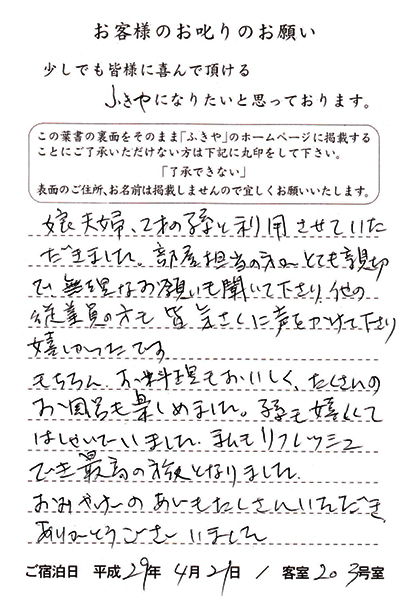 お客様のお叱りのお願い
少しでも皆様に喜んで頂ける
ふきやになりたいと思っております。
この葉書の裏面をそのまま「ふきや」のホームページに掲載する
ことにご了承いただけない方は下記に丸印をして下さい。
「了承できない」
表面のご住所、お名前は掲載しませんので宜しくお願いいたします。
娘夫婦、2才の孫と利用させていた
だきました。部屋担当の方がとても親切
で、無理なお願いも聞いて下さり、他の
従業員の方も皆気さくに声をかけて下さり
嬉しかったです
もちろん、お料理もおいしく、たくさんの
お風呂も楽しめました。孫も嬉しくて
はしゃいでいました。私もリフレッシュ
でき最高の旅となりました。
おみやげの あじもたくさんいただき
ありがとうございました
ご宿泊日 平成29年 4月21日 / 客室203号室